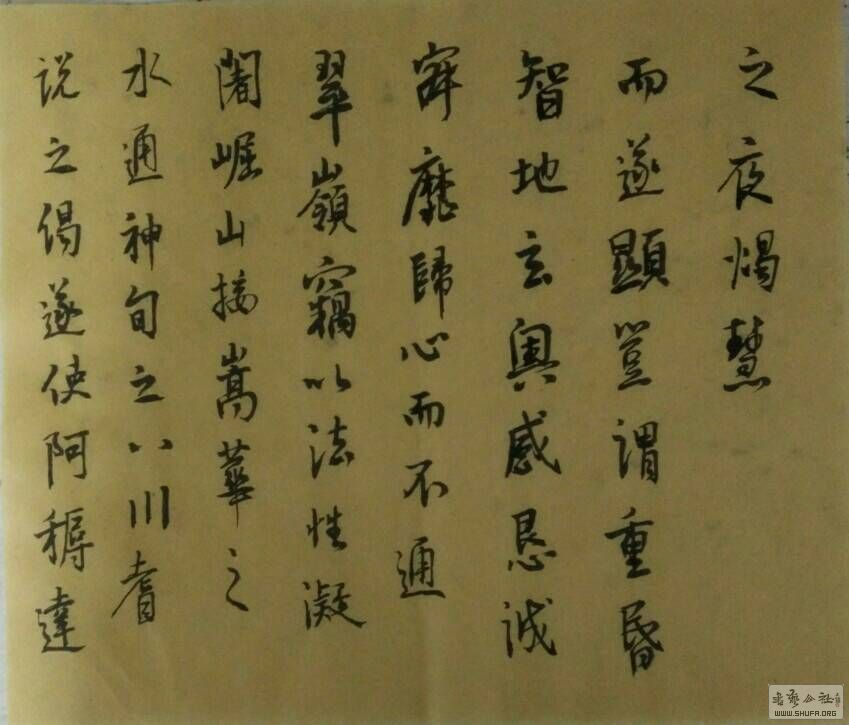 説之偈遂使阿耨達
水通神甸之八川耆
闍崛山接嵩華之
翠嶺竊以法性凝
寂靡歸心而不通
智地玄奥感恳誠
而遂顯豈謂重昏
之夜燭慧
書藝公社
WWW.SHUFA.ORG